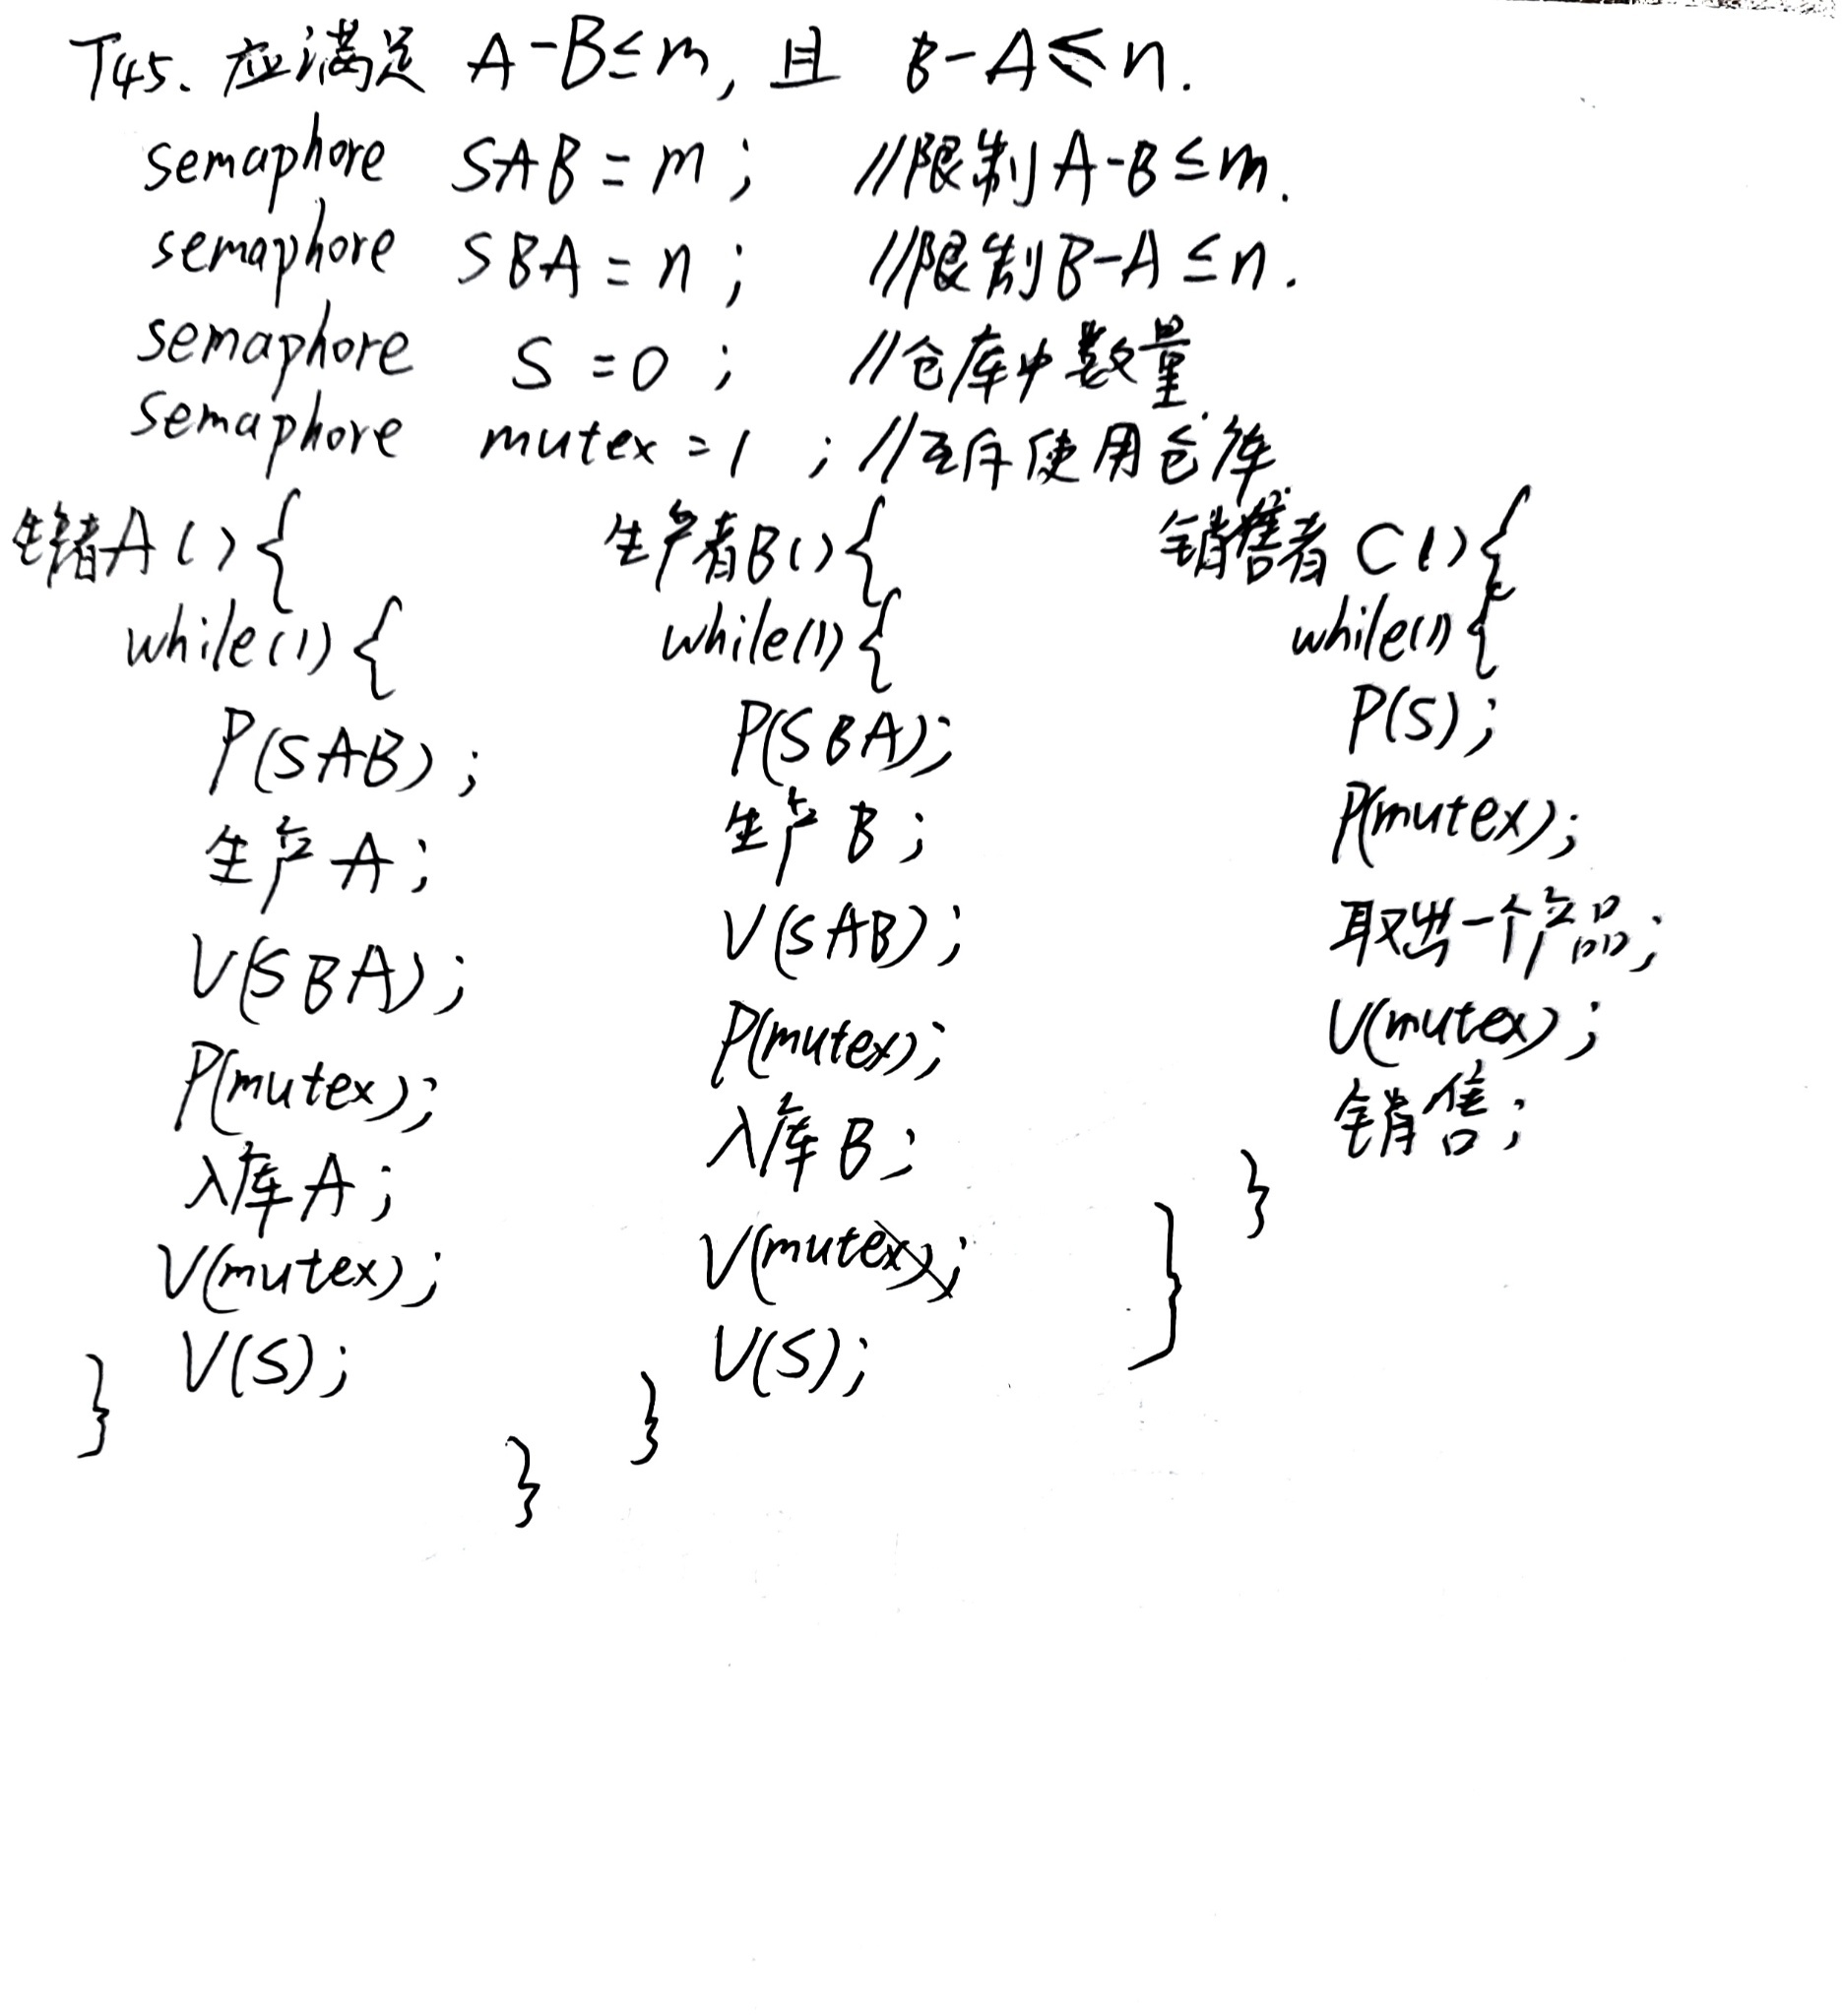 T45. 应满足 A-B≤m, 且 B-A≤n.
semaphore SAB=m; //限制A-B≤m.
semaphore SBA=n; //限制B-A≤n.
semaphore S=0; //仓库中数量
semaphore mutex=1; //互斥使用仓库.
生产者A(){
while(1){
P(SAB);
生产A;
V(SBA);
P(mutex);
入库A;
V(mutex);
V(S);
}
}
生产者B(){
while(1){
P(SBA);
生产B;
V(SAB);
P(mutex);
入库B;
V(mutex);
V(S);
}
销售者C(){
while(1){
P(S);
P(mutex);
取出一个产品;
V(mutex);
销售;
}
}